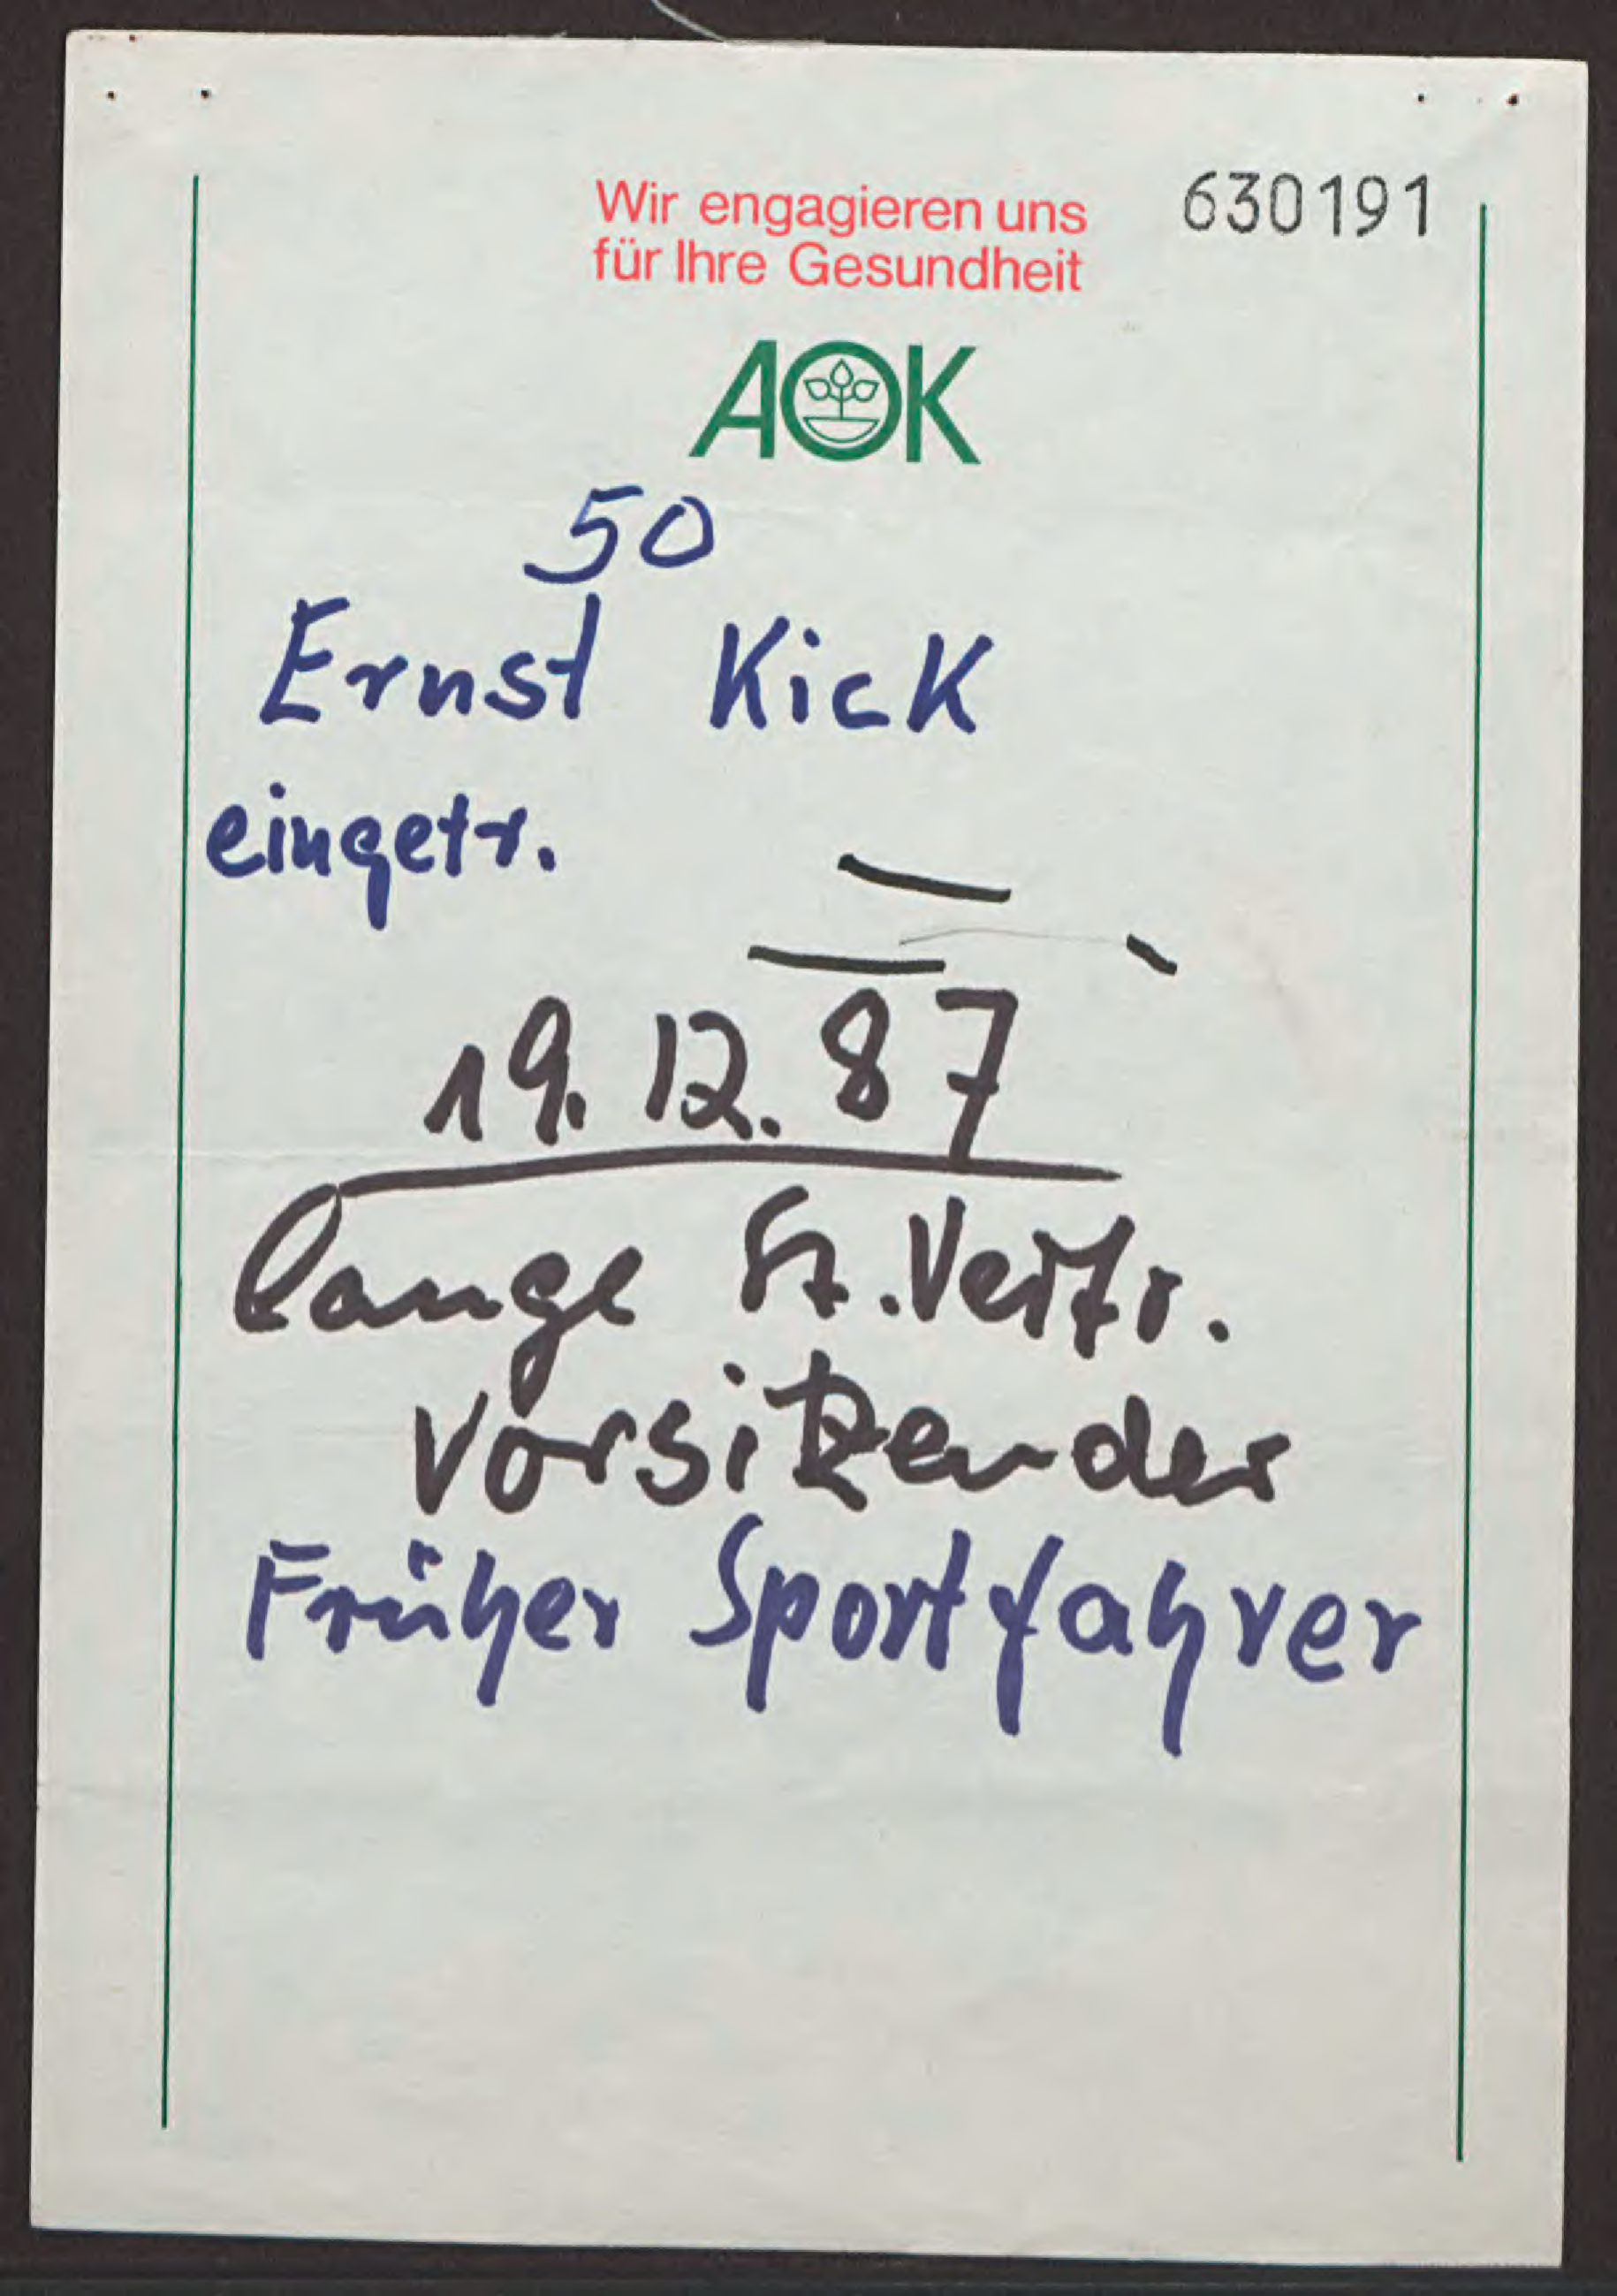 Wir engagieren uns
für Ihre Gesundheit
630191
AOK
50
Ernst Kick
eingetr.
19.12.87
lange St.Vertr.
Vorsitzender
Früher Sportfahrer